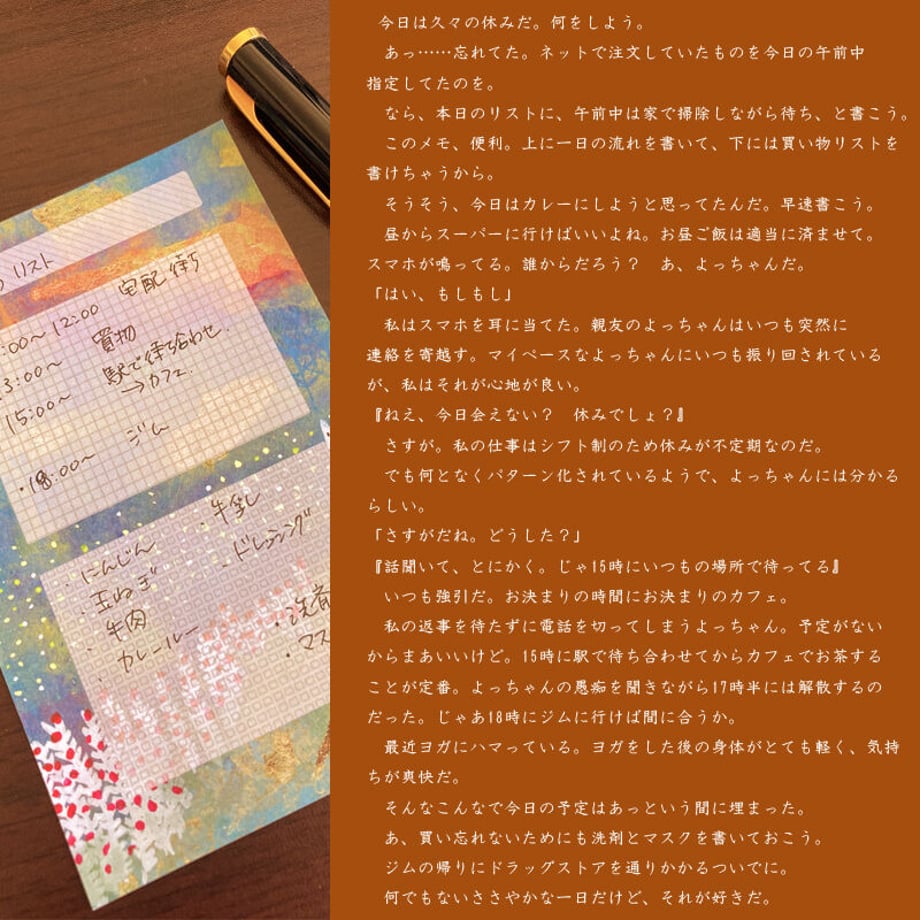 リスト
:00～12:00 宅配待ち
3:00～ 買物
15:00～ 駅で待ち合わせ.
→カフェ.
・18:00～ ジム
・にんじん
・玉ねぎ
・牛肉
・カレールー
・牛乳
・ドレッシング
・洗
・マス
今日は久々の休みだ。何をしよう。
あっ……忘れてた。ネットで注文していたものを今日の午前中
指定してたのを。
なら、本日のリストに、午前中は家で掃除しながら待ち、と書こう。
このメモ、便利。上に一日の流れを書いて、下には買い物リストを
書けちゃうから。
そうそう、今日はカレーにしようと思ってたんだ。早速書こう。
昼からスーパーに行けばいいよね。お昼ご飯は適当に済ませて。
スマホが鳴ってる。誰からだろう？　あ、よっちゃんだ。
「はい、もしもし」
私はスマホを耳に当てた。親友のよっちゃんはいつも突然に
連絡を寄越す。マイペースなよっちゃんにいつも振り回されている
が、私はそれが心地が良い。
『ねえ、今日会えない？　休みでしょ？』
さすが。私の仕事はシフト制のため休みが不定期なのだ。
でも何となくパターン化されているようで、よっちゃんには分かる
らしい。
「さすがだね。どうした？」
『話聞いて、とにかく。じゃ15時にいつもの場所で待ってる』
いつも強引だ。お決まりの時間にお決まりのカフェ。
私の返事を待たずに電話を切ってしまうよっちゃん。予定がない
からまあいいけど。15時に駅で待ち合わせてからカフェでお茶する
ことが定番。よっちゃんの愚痴を聞きながら17時半には解散するの
だった。じゃあ18時にジムに行けば間に合うか。
最近ヨガにハマっている。ヨガをした後の身体がとても軽く、気持
ちが爽快だ。
そんなこんなで今日の予定はあっという間に埋まった。
あ、買い忘れないためにも洗剤とマスクを書いておこう。
ジムの帰りにドラッグストアを通りかかるついでに。
何でもないささやかな一日だけど、それが好きだ。